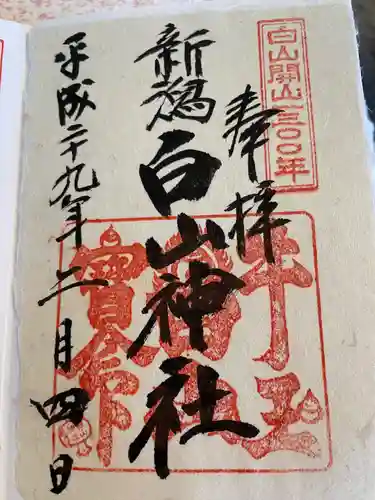 白山開山一三〇〇年
奉拝
新潟
白山神社
平成二十九年二月四日
牛玉
寶命